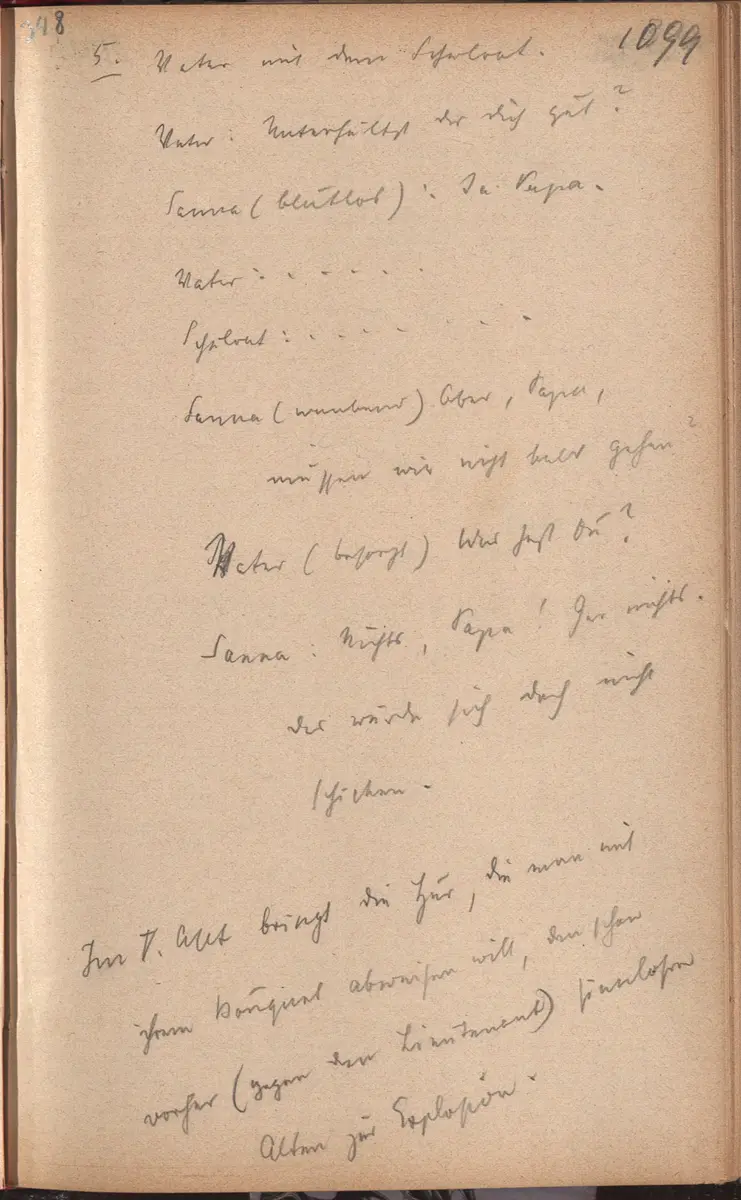 348
1099
5. Vater mit dem Schulrat.
Vater: Unterhältst du dich gut?
Sanna (blutlos): Ja Papa.
Vater: . . . . . .
Schulrat: . . . . . . . .
Sanna ( ) Aber, Papa,
müssen wir nicht bald gehen?
Vater (besorgt) Was hast Du?
Sanna: Nichts, Papa! Gar nichts.
das würde sich doch nicht
schicken.
Im V. Akt bringt die Hur, die man mit
ihrem Bouquet abweisen will, den schon
vorher (gegen den Lieutenant) sinnlosen
Alten zur Explosion.